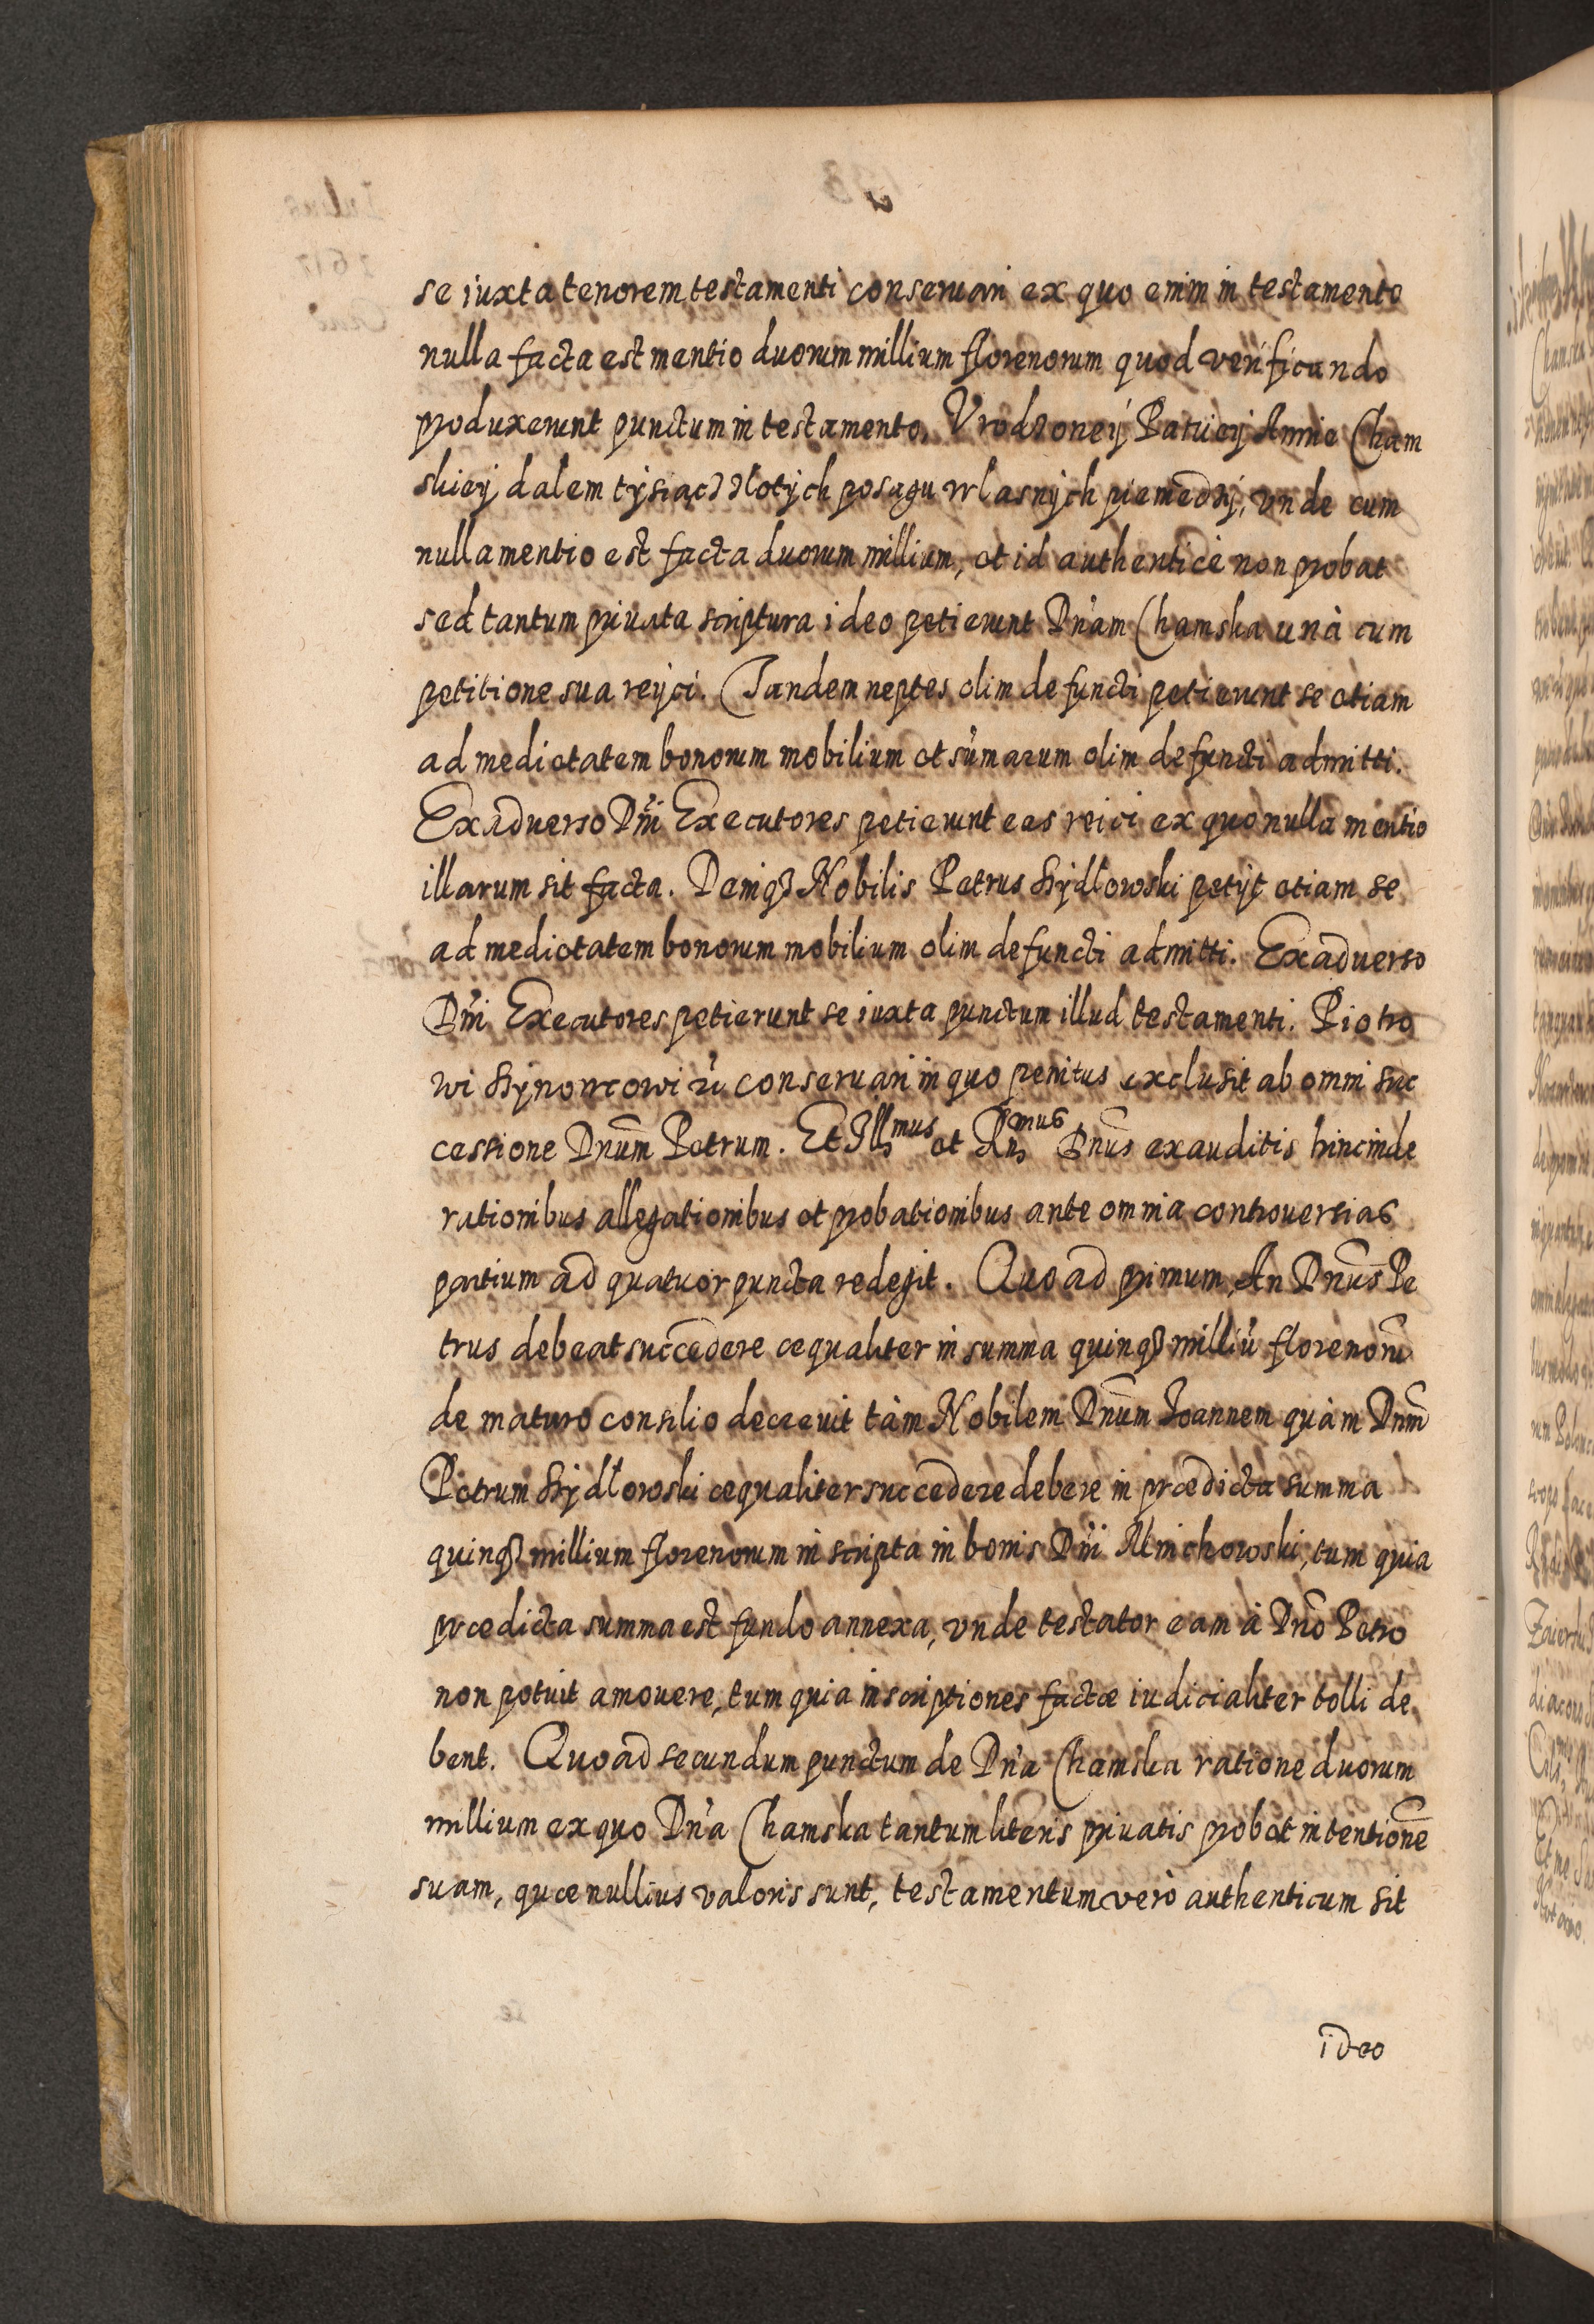 se iuxta tenorem testamenti conseruari ex quo enim in testamento
nulla facta est mentio duorum millium florenorum quod verificando
produxerunt punctum in testamento, Vrodzoneÿ Paniey Annie Cham
skieÿ dalem tÿsiac zlotÿch posagu wlasnÿch pieniedzÿ, vnde cum
nulla mentio est facta duorum millium, et id authenticè non probat
sed tantum priuata scriptura ideo petierunt Dn̄am Chamska unà cum
petitione sua reijci. Tandem neptes olim defuncti petierunt se etiam
ad medietatem bonorum mobilium et sum̄arum olim defuncti admitti.
Ex aduerso Dn̄i Executores petierunt eas reici ex quo nulla mentio
illarum sit facta. Deniqȝ Nobilis Petrus Szÿdlowski petÿt etiam se
ad medietatem bonorum mobilium olim defuncti admitti. Ex aduerso
Dn̄i Executores petierunt se iuxta punctum illud testamenti. Piotro
wi Sÿnowcowi &c conseruari in quo penitus exclusit ab omni suc
cessione Dnūm Petrum. Et Illmus et Rn̄mus Dnūs exauditis hincinde
rationibus allegationibus et probationibus ante omnia controuersias
partium ad quatuor puncta redegit. Quo ad primum, An Dnūs Pe
trus debeat succedere æqualiter in summa quinqȝ milliū florenorū
de maturo consilio decreuit tàm Nobilem Dnūm Ioannem quàm Dnūm
Petrum Szÿdlowski æqualiter succedere debere in prædicta summa
quinqȝ millium florenorum inscripta in bonis Dn̄i Minchowski, tum quia
prædicta summa est fundo annexa, vnde testator eam à Dnō Petro
non potuit amouere, tum quia inscriptiones factæ iudicialiter tolli de
bent. Quo ad secundum punctum de Dn̄a Chamska ratione duorum
millium ex quo Dn̄a Chamska tantum literis priuatis probat intentionē
suam, quæ nullius valoris sunt, testamentum verò authenticum sit
ideo